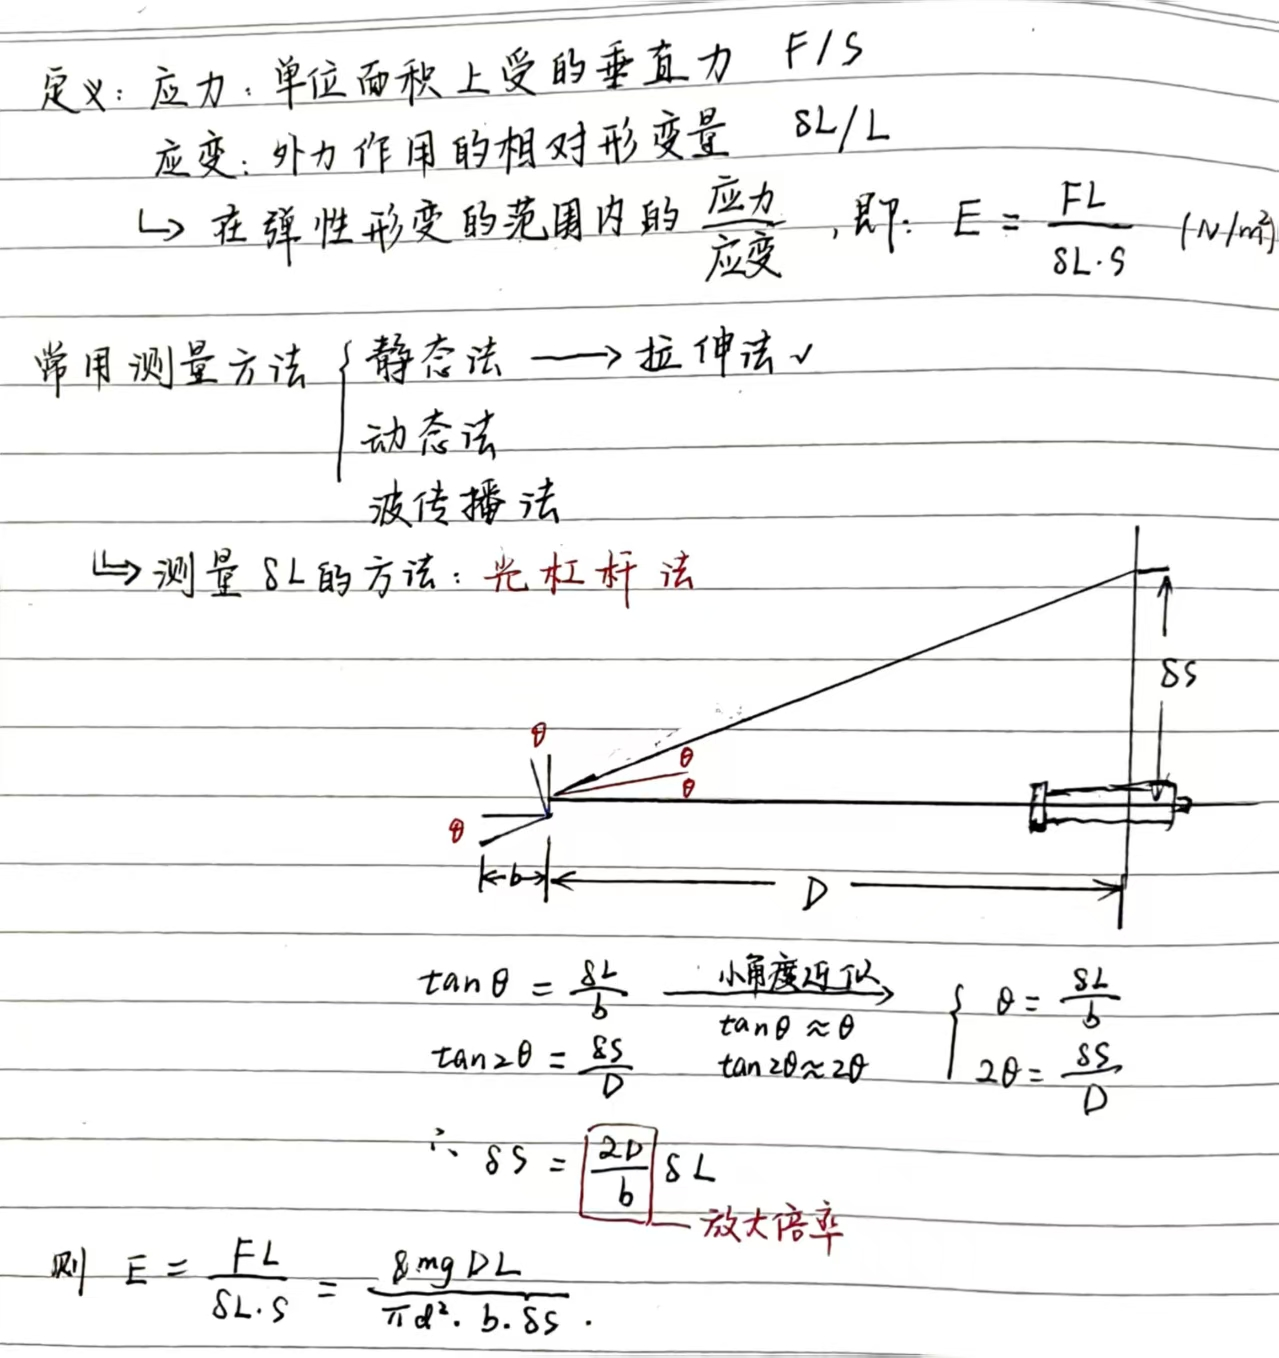 定义：应力：单位面积上受的垂直力 F/S
应变：外力作用的相对形变量 δL/L
↳ 在弹性形变的范围内的 应力/应变，即：E = FL/δL·S (N/m²)
常用测量方法 { 静态法 → 拉伸法 ✓
动态法
波传播法
↳ 测量δL的方法：光杠杆法
δS
θ
θ
θ
θ
b
D
tanθ = δL/b 小角度近似 θ = δL/b
tanθ ≈ θ
tan2θ = δS/D tan2θ≈2θ 2θ = δS/D
∴ δS = 2D/b δL
放大倍率
则 E = FL/δL·S = 8mgDL/πd²·b·δS.